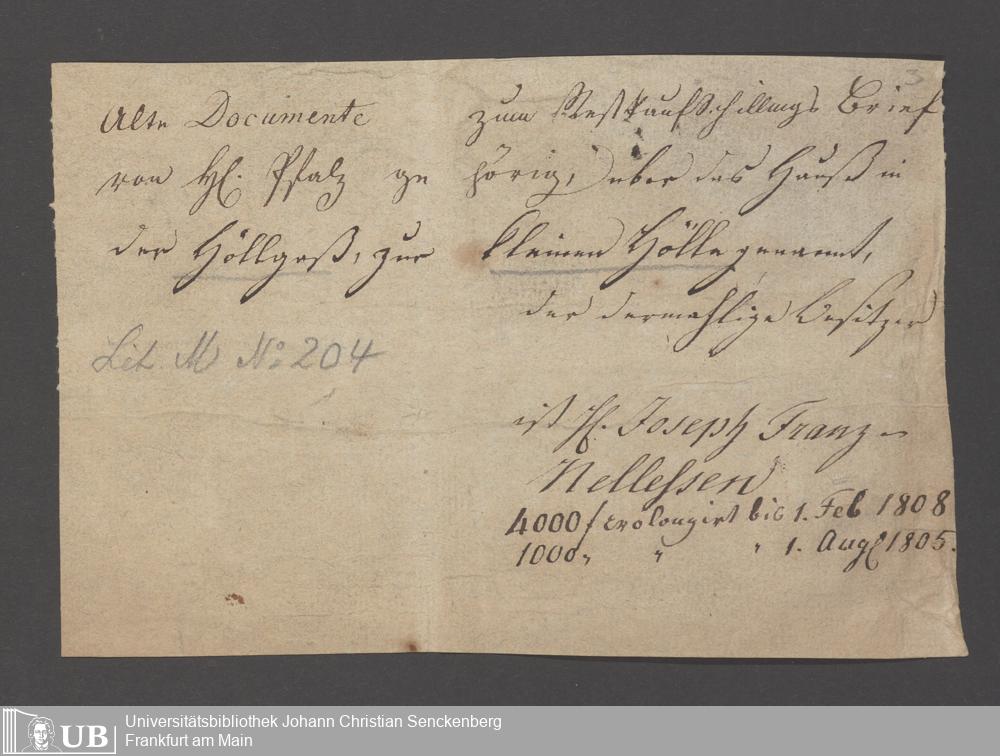 Alte Documente zum Restkaufschillings Brief
von H. Pfalz gehörig, über das Hauß in
der Höllgaß, zur kleinen Hölle genannt,
der dermahlige Besitzer
Lit. M No. 204
ist H. Joseph Franz
Nellessen
4000 f prolongirt bis 1. Feb 1808
1000 " " " 1. Aug 1805.
3
UB
Universitätsbibliothek Johann Christian Senckenberg
Frankfurt am Main